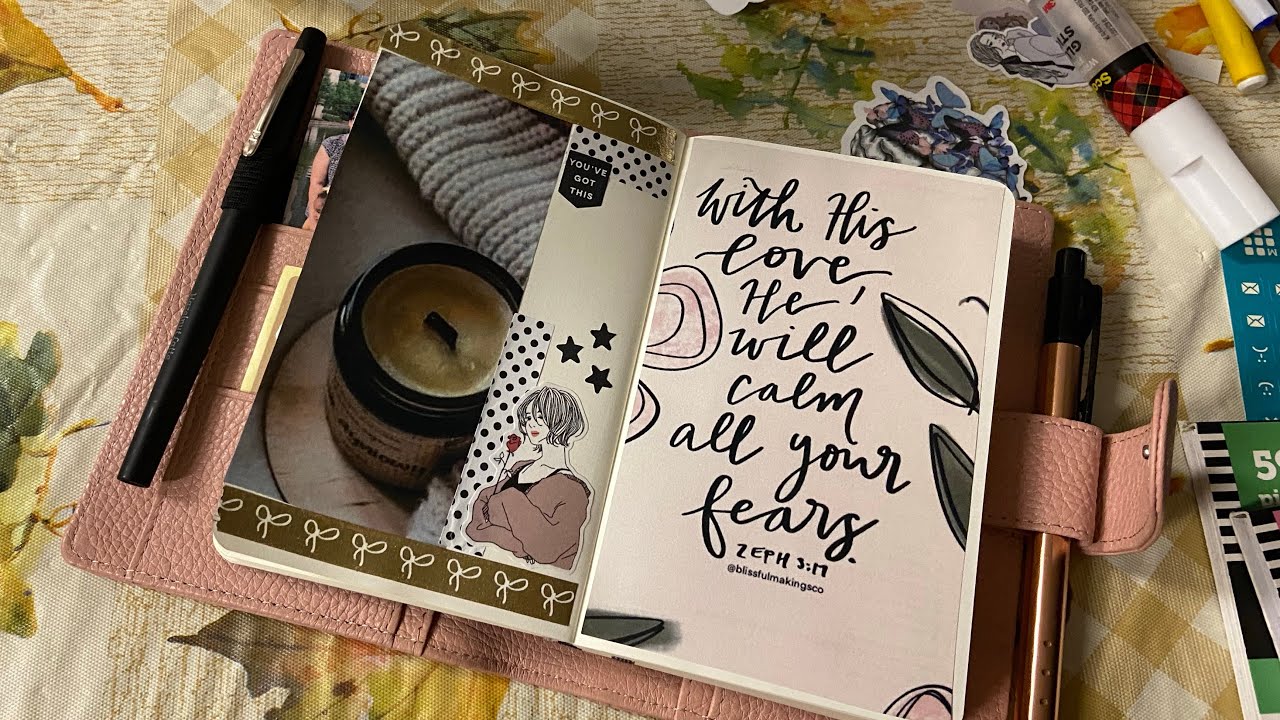 YOU'VE
GOT
THIS
With His
love,
He
will
calm
all your
fears.
ZEPH 3:17
@blissfulmakingsco